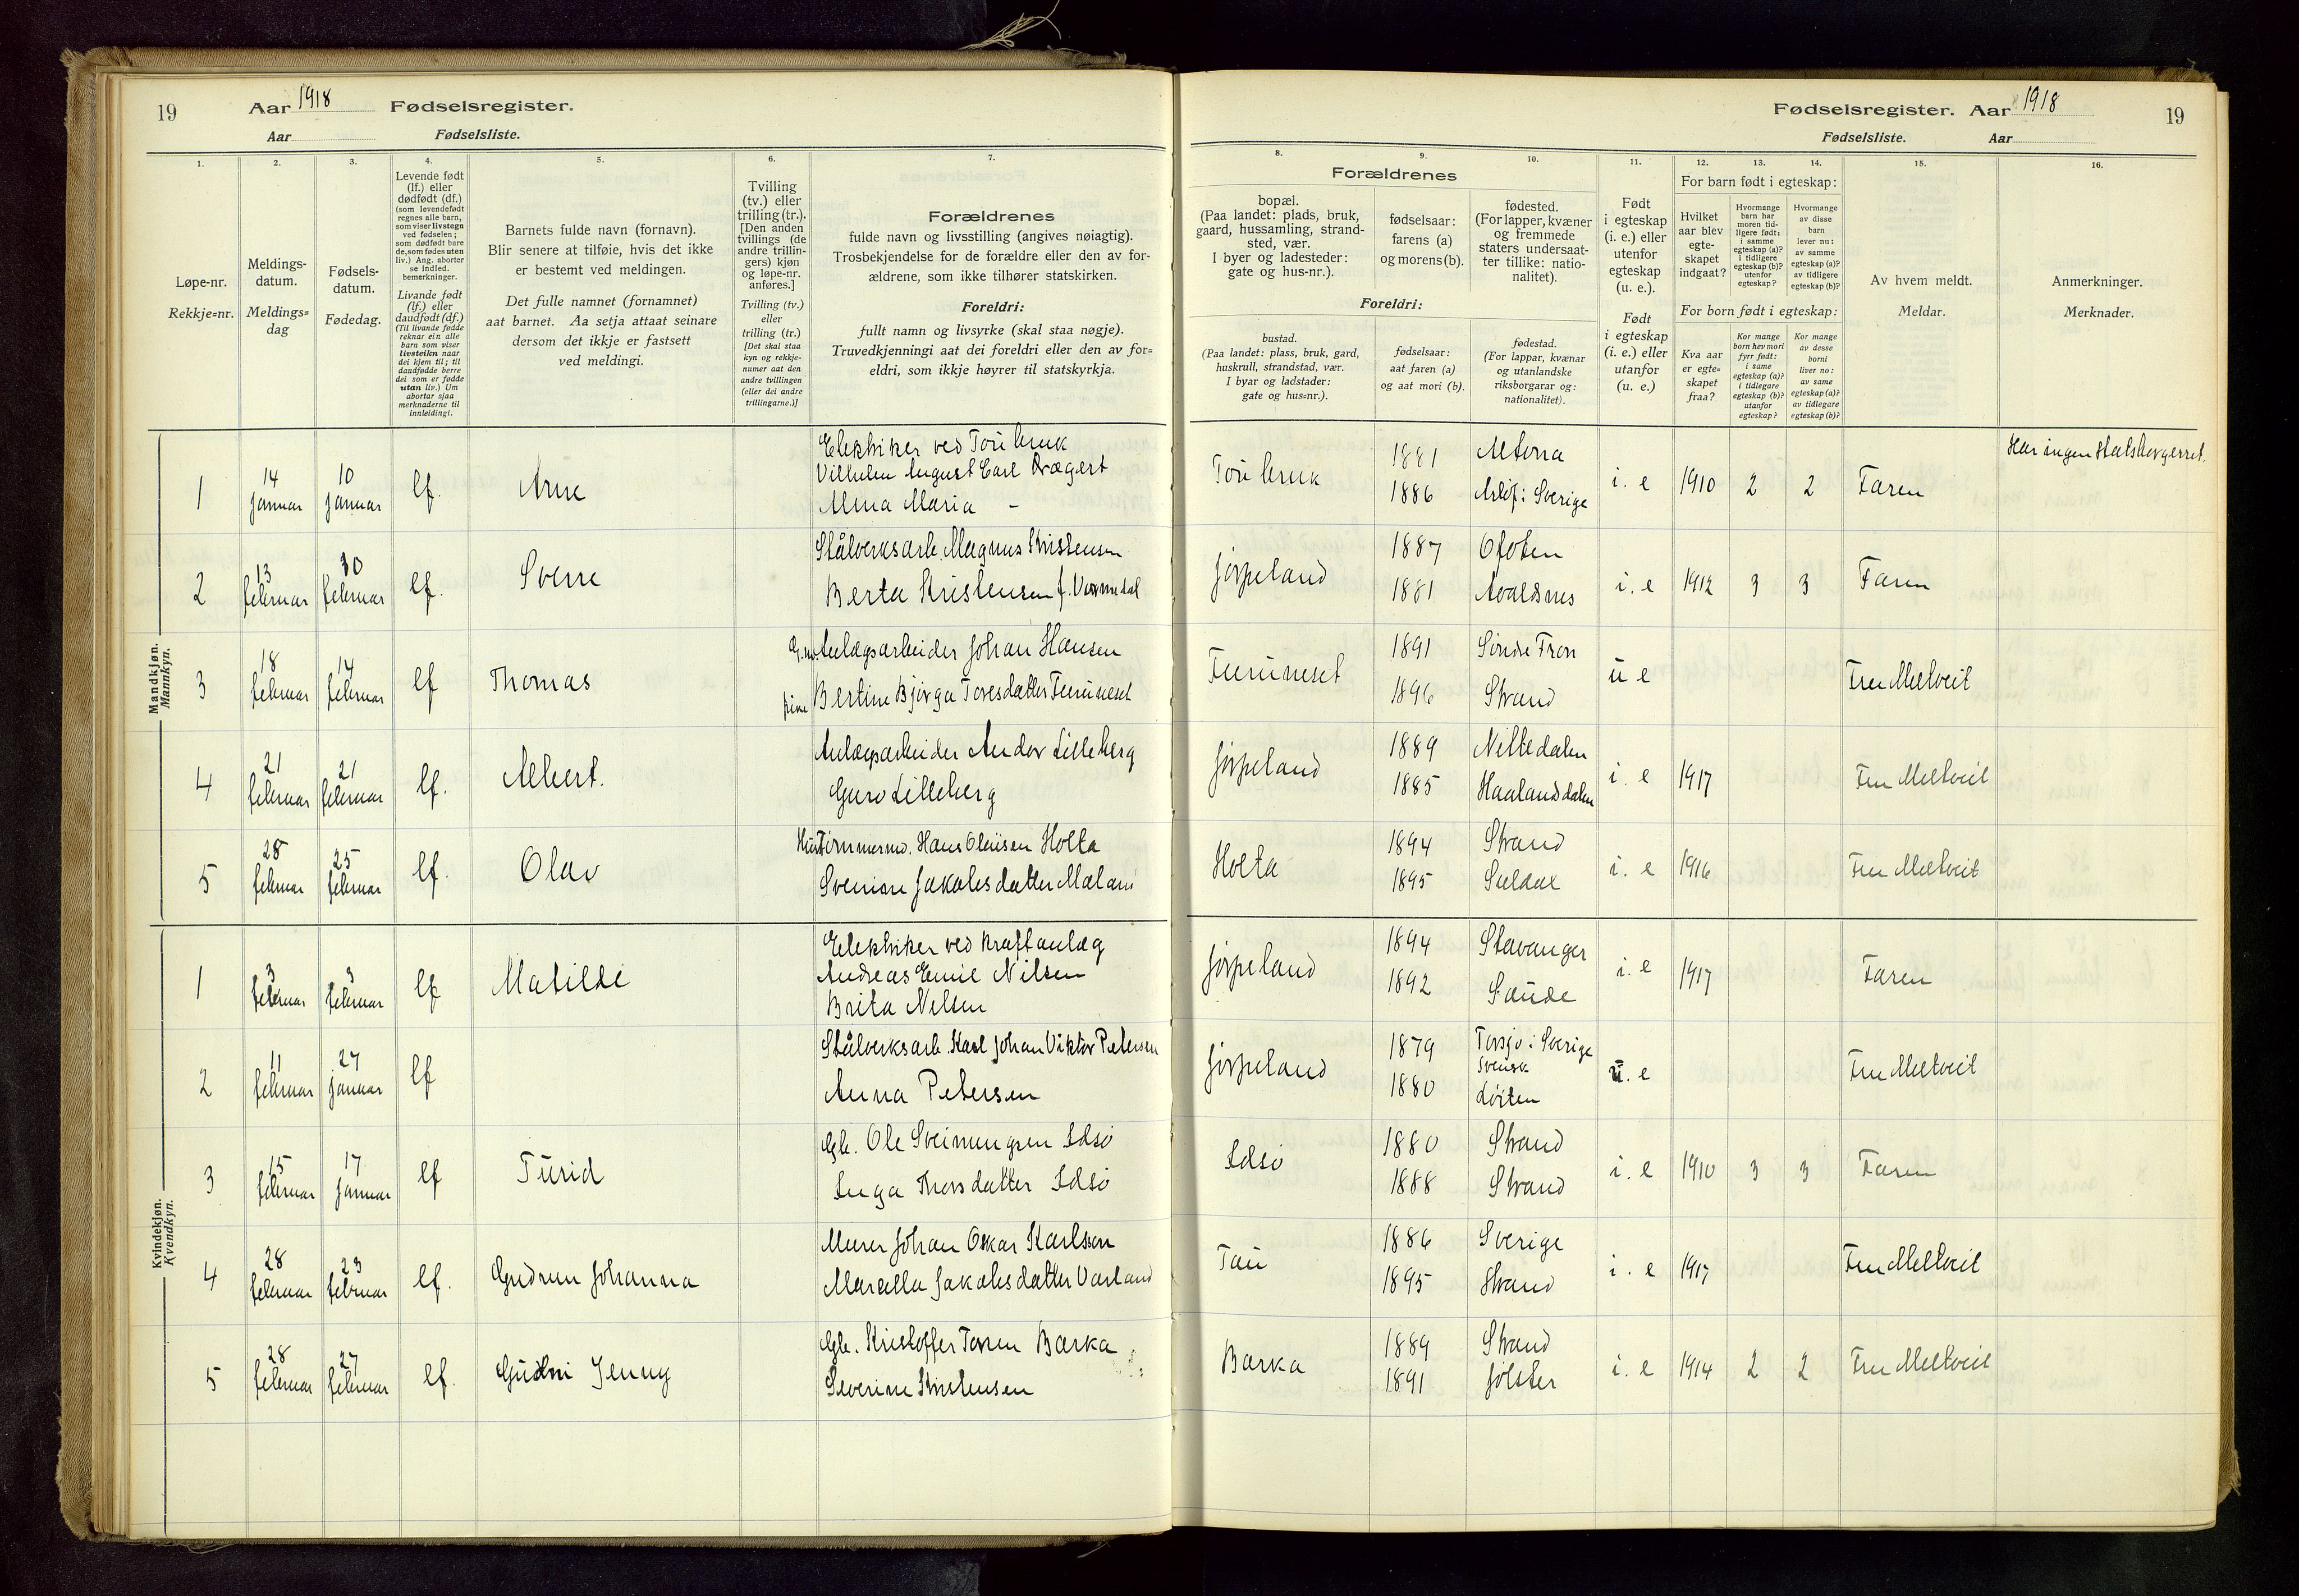 19 Aar 1918 Fødselsregister.
Aar Fødselsliste.
Fødselsregister. Aar 1918 19
Fødselsliste. Aar
1. 2. 3. 4. 5. 6. 7. 8. 9. 10. 11. 12. 13. 14. 15. 16.
Løpe-nr.
Rekkje=nr.
Meldings-
datum.
Meldings=
dag
Fødsels-
datum.
Fødedag.
Levende født
(lf.) eller
dødfødt (df.)
(som levendefødt
regnes alle barn,
som viser livstegn
ved fødselen;
som dødfødt bare
de, som fødes uten
liv.) Ang. aborter
se indled.
bemerkninger.
Livande født
(lf.) eller
daudfødt (df.)
(Til livande fødde
reknar ein alle
barn som viser
livsteiken naar
dei kjem til; til
daudfødde berre
dei som er fødde
utan liv.) Um
abortar sjaa
merknaderne til
innleidingi.
Barnets fulde navn (fornavn).
Blir senere at tilføie, hvis det ikke
er bestemt ved meldingen.
Det fulle namnet (fornamnet)
aat barnet. Aa setja attaat seinare
dersom det ikkje er fastsett
ved meldingi.
Tvilling
(tv.) eller
trilling (tr.).
[Den anden
tvillings (de
andre trillin-
gers) kjøn
og løpe-nr.
anføres.]
Tvilling (tv.)
eller
trilling (tr.)
[Det skal staa
kyn og rekkje-
numer aat den
andre tvillingen
(eller dei andre
trillingarne.)]
Forældrenes
fulde navn og livsstilling (angives nøiagtig).
Trosbekjendelse for de forældre eller den av for-
ældrene, som ikke tilhører statskirken.
Foreldri:
fullt namn og livsyrke (skal staa nøgje).
Truvedkjenningi aat dei foreldri eller den av for=
eldri, som ikkje høyrer til statskyrkja.
Forældrenes
bopæl.
(Paa landet: plads, bruk,
gaard, hussamling, strand-
sted, vær.
I byer og ladesteder:
gate og hus-nr.).
fødselsaar:
farens (a)
og morens (b).
fødested.
(For lapper, kvæner
og fremmede
staters undersaat-
ter tillike: natio-
nalitet).
Foreldri:
bustad.
(Paa landet: plass, bruk, gard,
huskrull, strandstad, vær.
I byar og ladstader:
gate og hus=nr.).
fødselsaar:
aat faren (a)
og aat mori (b).
fødestad.
(For lappar, kvænar
og utanlandske
riksborgarar og:
nationalitet).
Født
i egteskap
(i. e.) eller
utenfor
egteskap
(u. e.).
Født
i egteskap
(i. e.) eller
utanfor
(u. e.)
For barn født i egteskap:
Hvilket
aar blev
egte-
skapet
indgaat?
Hvormange
barn har
moren tid-
ligere født:
i samme
egteskap (a)?
i tidligere
egteskap (b)?
utenfor
egteskap?
Hvormange
av disse
barn
lever nu:
av samme
egteskap (a)?
av tidligere
egteskap (b)?
For born født i egteskap:
Kva aar
er egte=
skapet
fraa?
Kor mange
born hev mori
fyrr født:
i same
egteskap (a)?
i tidlegare
egteskap (b)?
utanfor
egteskap?
Kor mange
av desse
borni
liver no:
av same
egteskap (a)?
av tidlegare
egteskap (b)?
Av hvem meldt.
Meldar.
Anmerkninger.
Merknader.
Mandkjøn.
Mannkyn.
Elektriker ved Tou bruk
1 14 januar 10 januar lf. Arne Vilhelm August Carl Drægert
Alma Maria -
Tou bruk 1881 Altona
1886 Arlöf i Sverige i. e 1910 2 2 Faren Har ingen statsborgerret.
2 13 februar 10 februar lf. Sverre Stålverksarb. Magnus Kristensen
Berta Kristensen f. Vormedal
Jørpeland 1887 Ofoten
1881 Avaldsnes i. e 1912 3 3 Faren
3 18 februar 14 februar lf Thomas Anlægsarbeider Johan Hansen
pike Bertine Bjørga Toresdatter Furuneset
Furuneset 1891 Søndre Fron
1896 Strand u e Fru Meltveit
4 21 februar 21 februar lf. Albert. Anlægsarbeider Andor Lilleberg
Guro Lilleberg
Jørpeland 1889 Nittedalen
1885 Haalandsdalen i. e 1917 Fru Meltveit
5 28 februar 25 februar lf. Olav Tømmermd. Hans Olausen Holta
Sverine Jakobsdatter Maland
Holta 1894 Strand
1895 Suldal i. e 1916 Fru Meltveit
Kvindekjøn.
Kvendkyn.
Elektriker ved Kraftanlæg
1 3 februar 3 februar lf Matilde Andreas Emil Nilsen
Brita Nilsen
Jørpeland 1894 Stavanger
1892 Saude i. e 1917 Faren
2 11 februar 27 januar lf Stålverksarb. Karl Johan Viktor Petersen
Anna Petersen
Jørpeland 1879 Torsjø i Sverige
svensk
1880 Løiten u. e Fru Meltveit
3 15 februar 17 januar lf Turid Gb. Ole Sveinungsen Idsø
Inga Thorsdatter Idsø
Idsø 1880 Strand
1888 Strand i. e 1910 3 3 Faren
4 28 februar 23 februar lf. Gudrun Johanna Murer Johan Oskar Karlsen
Marcella Jakobsdatter Varland
Tau 1886 Sverige
1895 Strand i. e 1917 Fru Meltveit
5 28 februar 27 februar lf. Gudni Jenny Gb. Kristoffer Toresen Barka
Severine Kristensen
Barka 1889 Strand
1891 Jølster i. e 1914 2 2 Fru Meltveit